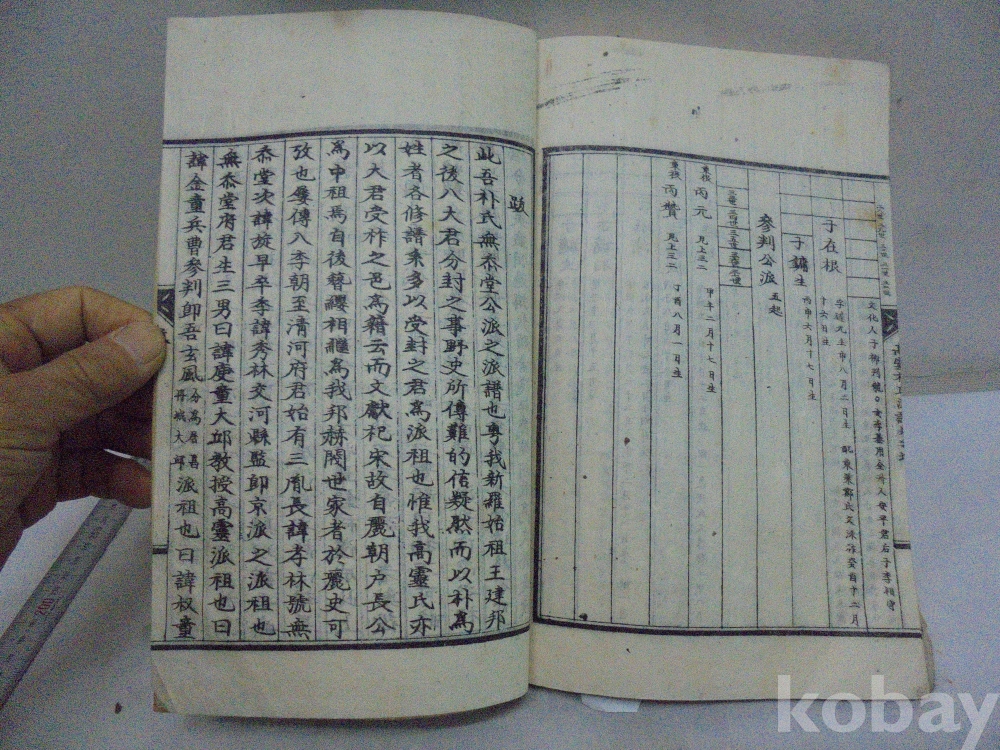 子在根
八月二日生
子鏞生
丙申六月十七日生
參判公派 五起
丙元 見上三二 甲午二月十七日生
丙贊 見上三二 丁酉八月一日生
跋
此吾朴氏無忝堂公派之派譜也粤我新羅始祖王建邦
之後八大君分封之事野史所傳難的信疑然而以朴爲
姓者各修譜来多以受封之君爲派祖也惟我高靈氏亦
以大君受祚之邑爲籍云而文獻杞宋故自麗朝户長公
爲中祖焉自後簪纓相繼爲我邦赫閥世家者於麗史可
攷也屢傳入李朝至清河府君始有三胤長諱孝林號無
忝堂次諱旋早卒季諱秀林交河縣監卽京派之派祖也
無忝堂府君生三男曰諱庚童大邱教授高靈派祖也曰
諱金童兵曹參判卽吾玄風分爲居昌丹城大邱派祖也曰諱权童
kobay